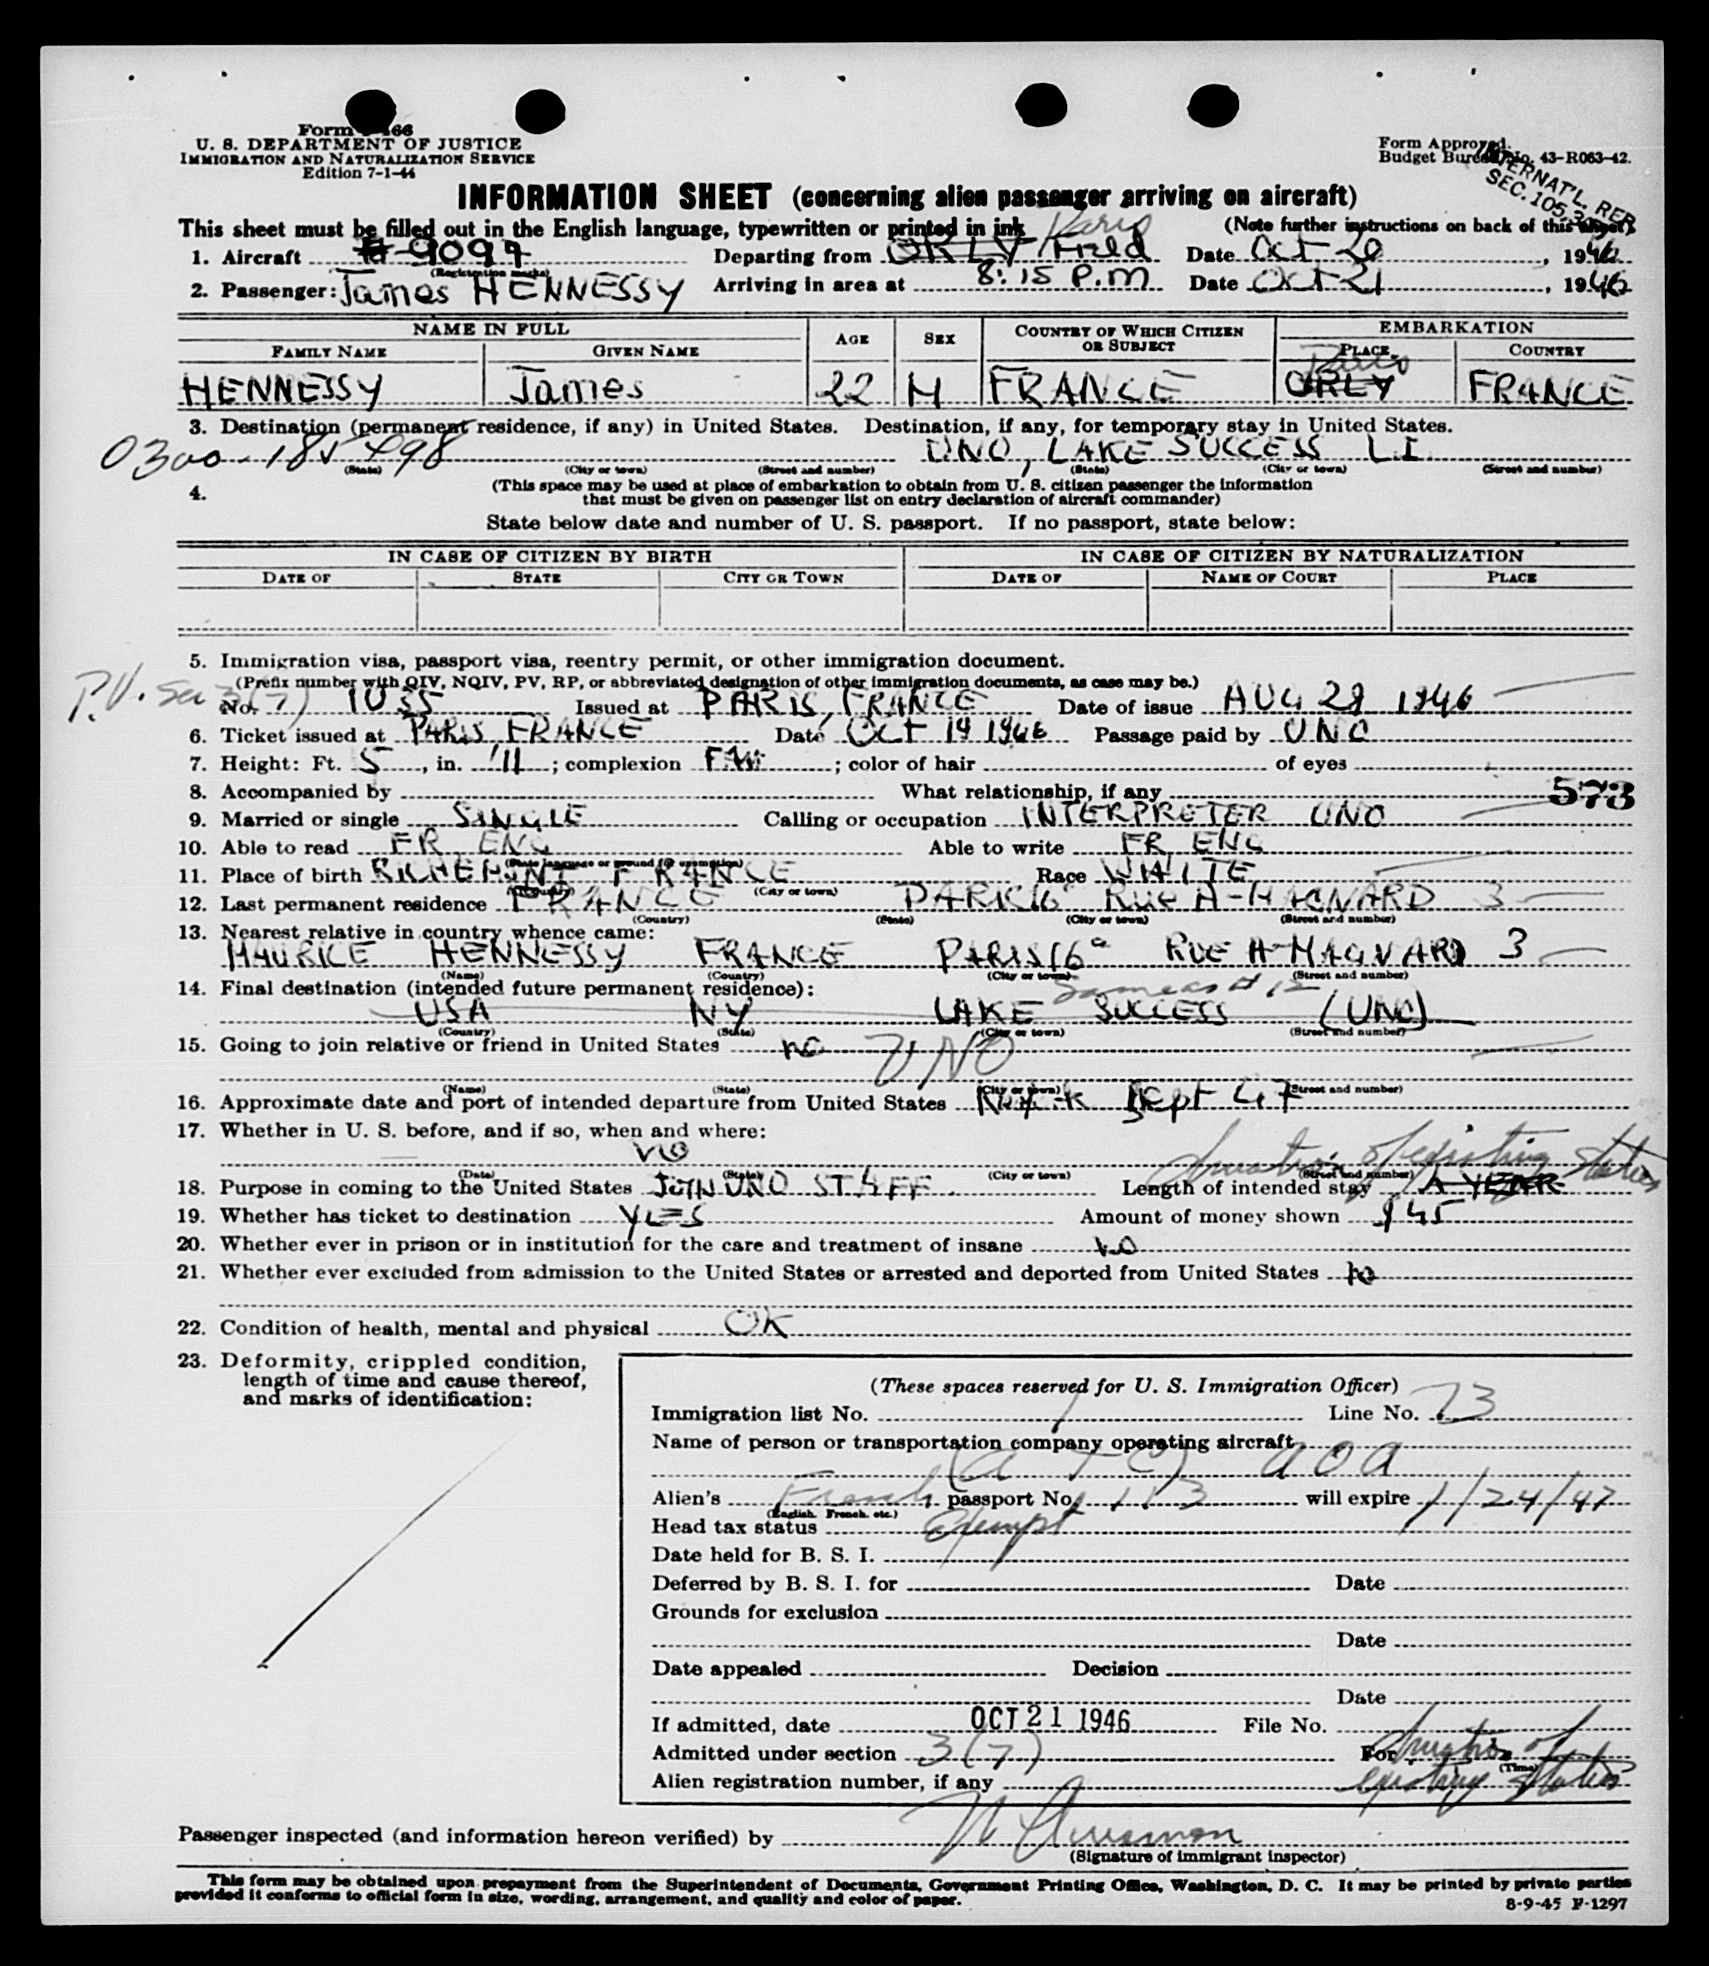 Form
U. S. DEPARTMENT OF JUSTICE
IMMIGRATION AND NATURALIZATION SERVICE
Edition 7-1-44
Form Approved.
Budget Bureau No. 43-R063-42.
INTERNAT'L. REP.
SEC. 105.3
INFORMATION SHEET (concerning alien passenger arriving on aircraft)
This sheet must be filled out in the English language, typewritten or printed in ink (Note further instructions on back of this sheet)
Paris
1. Aircraft # 9099 Departing from ORLY Field Date Oct 20, 1946
(Registration marks)
2. Passenger: James HENNESSY Arriving in area at 8:15 P.M Date Oct 21, 1946
NAME IN FULL AGE SEX COUNTRY OF WHICH CITIZEN OR SUBJECT EMBARKATION
FAMILY NAME GIVEN NAME PLACE COUNTRY
Paris
HENNESSY James 22 M FRANCE ORLY FRANCE
3. Destination (permanent residence, if any) in United States. Destination, if any, for temporary stay in United States.
0300-185498 UNO, LAKE SUCCESS L.I.
(State) (City or town) (Street and number) (State) (City or town) (Street and number)
4. (This space may be used at place of embarkation to obtain from U. S. citizen passenger the information
that must be given on passenger list on entry declaration of aircraft commander)
State below date and number of U. S. passport. If no passport, state below:
IN CASE OF CITIZEN BY BIRTH IN CASE OF CITIZEN BY NATURALIZATION
DATE OF STATE CITY OR TOWN DATE OF NAME OF COURT PLACE
5. Immigration visa, passport visa, reentry permit, or other immigration document.
(Prefix number with QIV, NQIV, PV, RP, or abbreviated designation of other immigration documents, as case may be.)
P.V. Sec 3(7)
No. 1035 Issued at PARIS, FRANCE Date of issue AUG 28 1946
6. Ticket issued at PARIS FRANCE Date OCT 19 1946 Passage paid by UNO
7. Height: Ft. 5, in. 11; complexion FAIR; color of hair of eyes
8. Accompanied by What relationship, if any 573
9. Married or single SINGLE Calling or occupation INTERPRETER UNO
10. Able to read FR. ENG Able to write FR ENG
(State language or ground for exemption)
11. Place of birth RICHEMONT FRANCE Race WHITE
(Country) (City or town)
12. Last permanent residence FRANCE PARIS 16° RUE A-MAGNARD 3
(Country) (State) (City or town) (Street and number)
13. Nearest relative in country whence came:
MAURICE HENNESSY FRANCE PARIS 16° RUE A-MAGNARD 3
(Name) (Country) (City or town) (Street and number)
14. Final destination (intended future permanent residence): Same as # 12
USA NY LAKE SUCCESS (UNO)
(Country) (State) (City or town) (Street and number)
15. Going to join relative or friend in United States no UNO
(Name) (State) (City or town) (Street and number)
16. Approximate date and port of intended departure from United States Sept 47
17. Whether in U. S. before, and if so, when and where:
NO
duration of existing status
(Date) (State) (City or town) (Street and number)
18. Purpose in coming to the United States JOIN UNO STAFF. Length of intended stay A YEAR
19. Whether has ticket to destination YES Amount of money shown $45
20. Whether ever in prison or in institution for the care and treatment of insane no
21. Whether ever excluded from admission to the United States or arrested and deported from United States no
22. Condition of health, mental and physical OK
23. Deformity, crippled condition,
length of time and cause thereof,
and marks of identification:
(These spaces reserved for U. S. Immigration Officer)
Immigration list No. 1 Line No. 73
Name of person or transportation company operating aircraft
(A T C) AOA
Alien's French passport No. 113 will expire 1/24/47
(English, French, etc.)
Head tax status Exempt
Date held for B. S. I.
Deferred by B. S. I. for Date
Grounds for exclusion
Date
Date appealed Decision
Date
If admitted, date OCT 21 1946 File No.
Admitted under section 3(7) For duration of
(Time)
Alien registration number, if any existing status
Passenger inspected (and information hereon verified) by
(Signature of immigrant inspector)
This form may be obtained upon prepayment from the Superintendent of Documents, Government Printing Office, Washington, D. C. It may be printed by private parties
provided it conforms to official form in size, wording, arrangement, and quality and color of paper.
8-9-45 F-1297